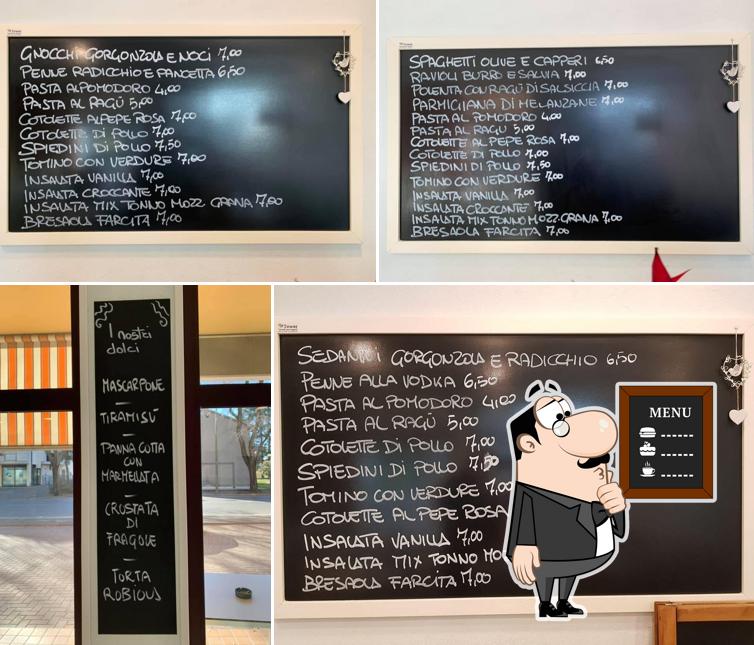 GNOCCHI GORGONZOLA E NOCI 7,00
PENNE RADICCHIO E PANCETTA 6,50
PASTA AL POMODORO 4,00
PASTA AL RAGÙ 5,00
COTOLETTE AL PEPE ROSA 7,00
COTOLETTE DI POLLO 7,00
SPIEDINI DI POLLO 7,50
TOMINO CON VERDURE 7,00
INSALATA VANILLA 7,00
INSALATA CROCCANTE 7,00
INSALATA MIX TONNO MOZZ. GRANA 7,00
BRESAOLA FARCITA 7,00
SPAGHETTI OLIVE E CAPPERI 6,50
RAVIOLI BURRO E SALVIA 7,00
POLENTA CON RAGÙ DI SALSICCIA 7,00
PARMIGIANA DI MELANZANE 7,00
PASTA AL POMODORO 4,00
PASTA AL RAGU 5,00
COTOLETTE AL PEPE ROSA 7,00
COTOLETTE DI POLLO 7,00
SPIEDINI DI POLLO 7,50
TOMINO CON VERDURE 7,00
INSALATA VANILLA 7,00
INSALATA CROCCANTE 7,00
INSALATA MIX TONNO MOZZ. GRANA 7,00
BRESAOLA FARCITA 7,00
I nostri
dolci
MASCARPONE
TIRAMISÚ
PANNA COTTA
CON
MARMELLATA
CROSTATA
DI
FRAGOLE
TORTA
ROBIOLA
SEDANINI GORGONZOLA E RADICCHIO 6,50
PENNE ALLA VODKA 6,50
PASTA AL POMODORO 4,00
PASTA AL RAGÙ 5,00
COTOLETTE DI POLLO 7,00
SPIEDINI DI POLLO 7,50
TOMINO CON VERDURE 7,00
COTOLETTE AL PEPE ROSA
INSALATA VANILLA 7,00
INSALATA MIX TONNO MO
BRESAOLA FARCITA 7,00
MENU